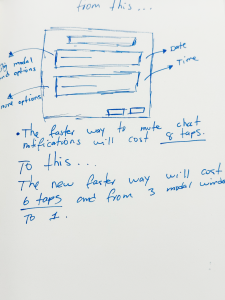 from this...
modal
options
more options
Date
Time
• The faster way to mute chat
notifications will cost 8 taps.
To this...
The new faster way will cost
6 taps and from 3 modal window
To 1.